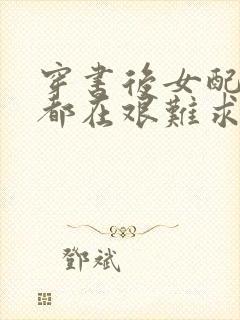 穿書後女配
都在艱難求
鄧斌